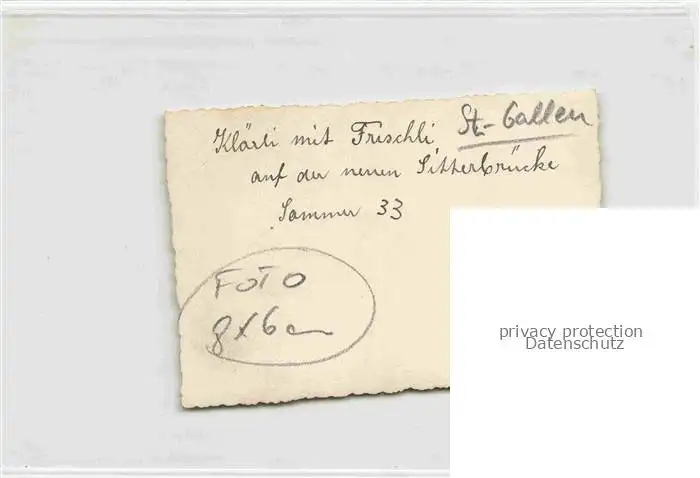 Klärli mit Frischli St-Gallen
auf der neuen Sitterbrücke
Sommer 33
FOTO
8x6cm
privacy protection
Datenschutz